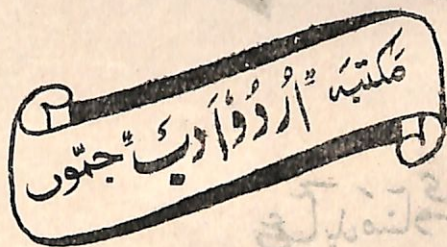 مکتبہ "اُردُو اَدبَ" جمّوں